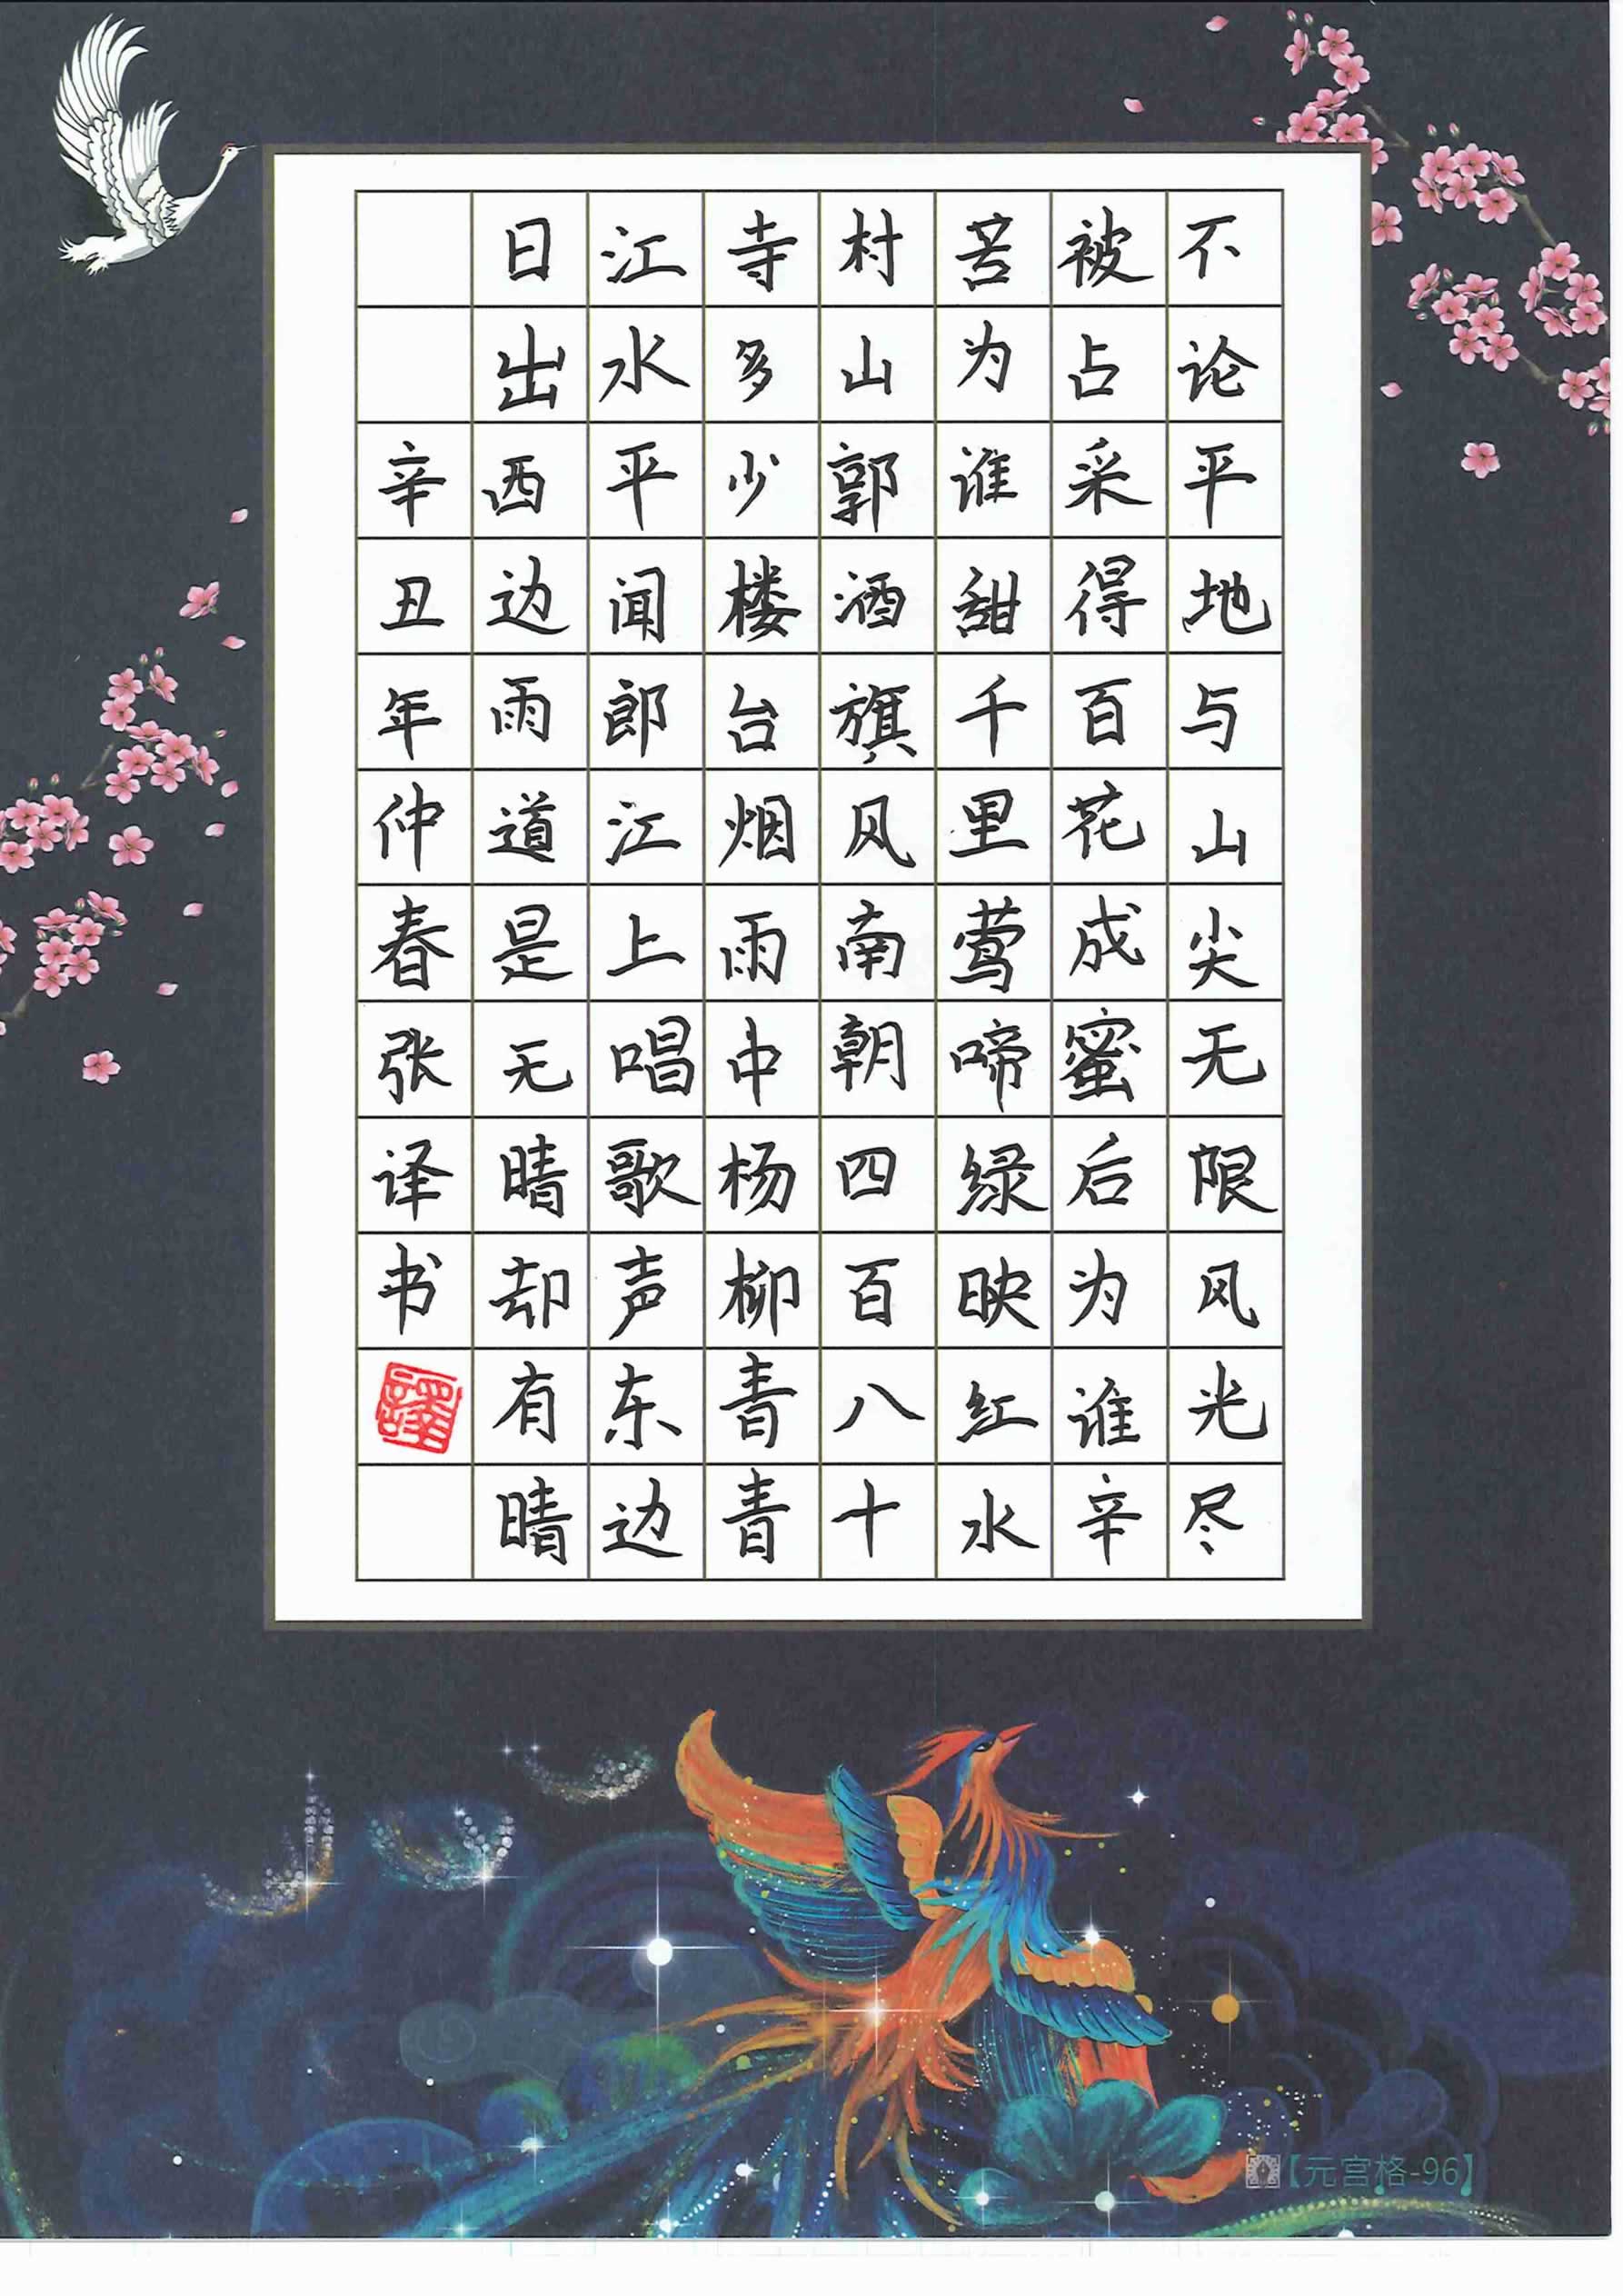 不论平地与山尖无限风光尽
被占采得百花成蜜后为谁辛
苦为谁甜千里莺啼绿映红水
村山郭酒旗风南朝四百八十
寺多少楼台烟雨中杨柳青青
江水平闻郎江上唱歌声东边
日出西边雨道是无晴却有晴
辛丑年仲春张译书
譯
【元宫格-96】